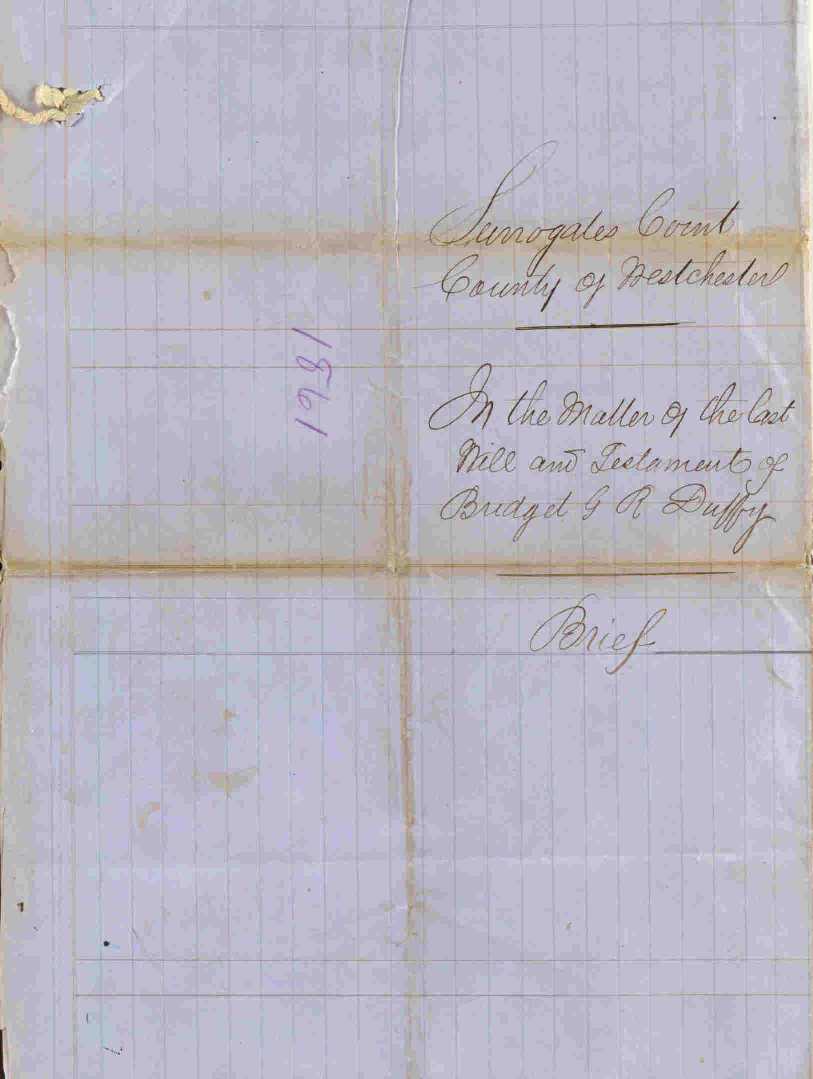 Surrogates Court
County of Westchester
In the Matter of the last
Will and Testament of
Bridget G R Duffy
Brief
1861